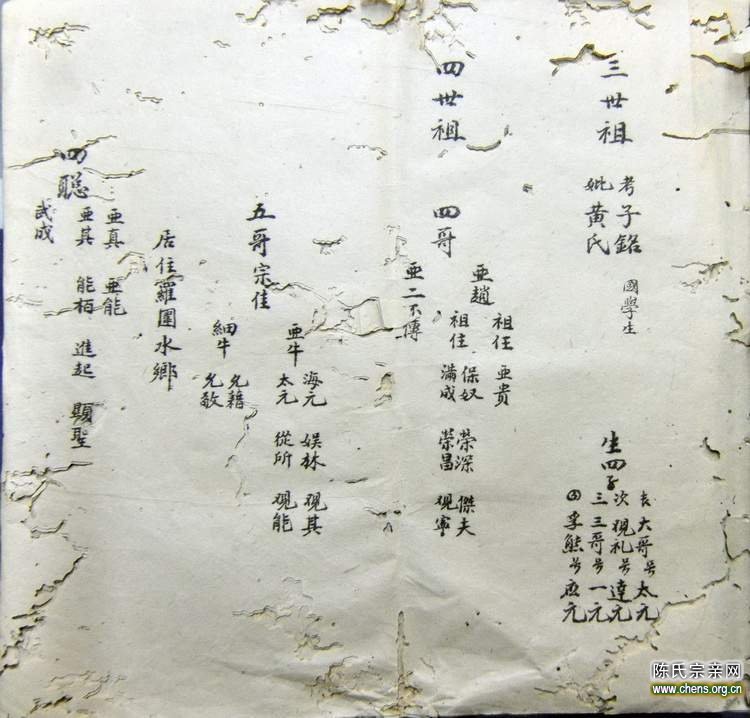 三世祖
考子銘 國學生
妣黃氏
生四子
長大哥号太元
次視礼号達元
三三哥号一元
四季熊号启元
四世祖
四哥
亞趙 祖任 亞貴
祖住 保奴 榮深 傑夫
滿成 榮昌 視寧
亞二不傳
五哥宗佳
亞牛 海元 娛林 視其
太元 從所 視能
細牛 允籍
允敎
居住羅圍水鄉
四聰
亞真 亞能
亞其 能栢 進起 顯聖
武成
陈氏宗亲网
www.chens.org.cn